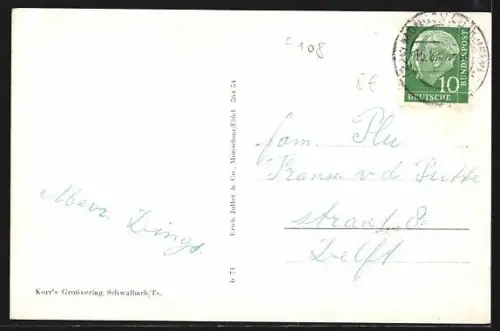 c 108
8E
10
DEUTSCHE
BUNDESPOST
fam. Plu
Frans v. d. Putte
straat 8.
Delft
Mevr. Dings.
Erich Jollet & Co., Monschau/Eifel 564 54
b 71
Korr's Großverlag, Schwalbach/Ts.